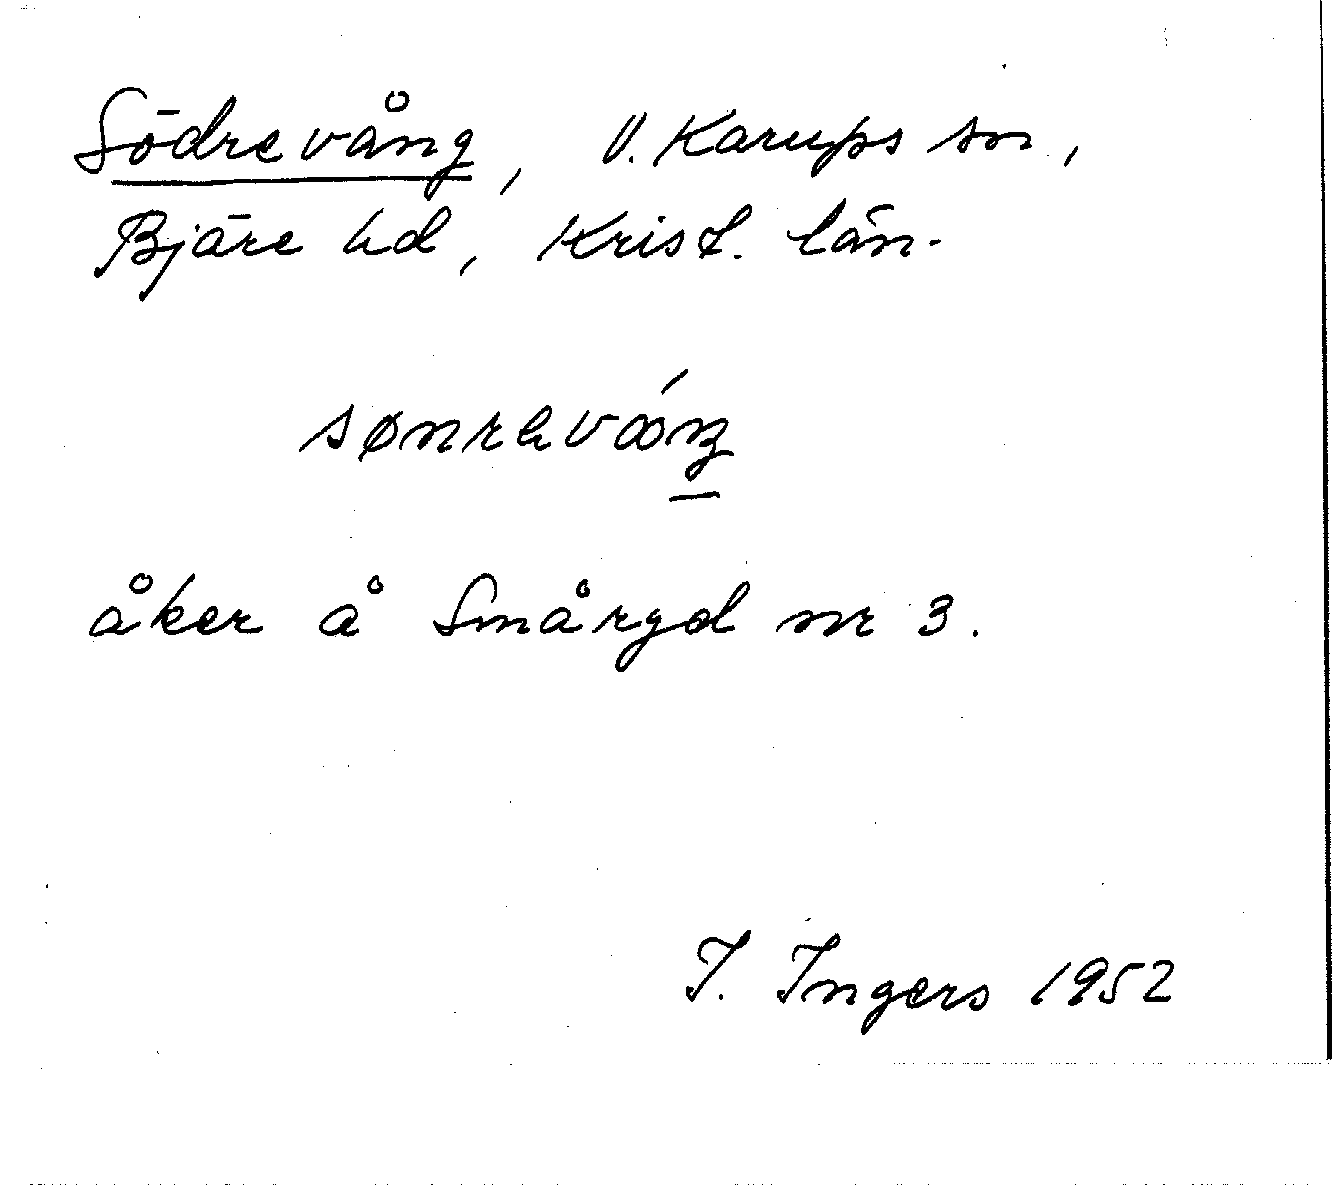 Södrevång, V. Karups sn,
Bjäre hd, Krist. län.
åker å Småryd nr 3.
I. Ingers 1952